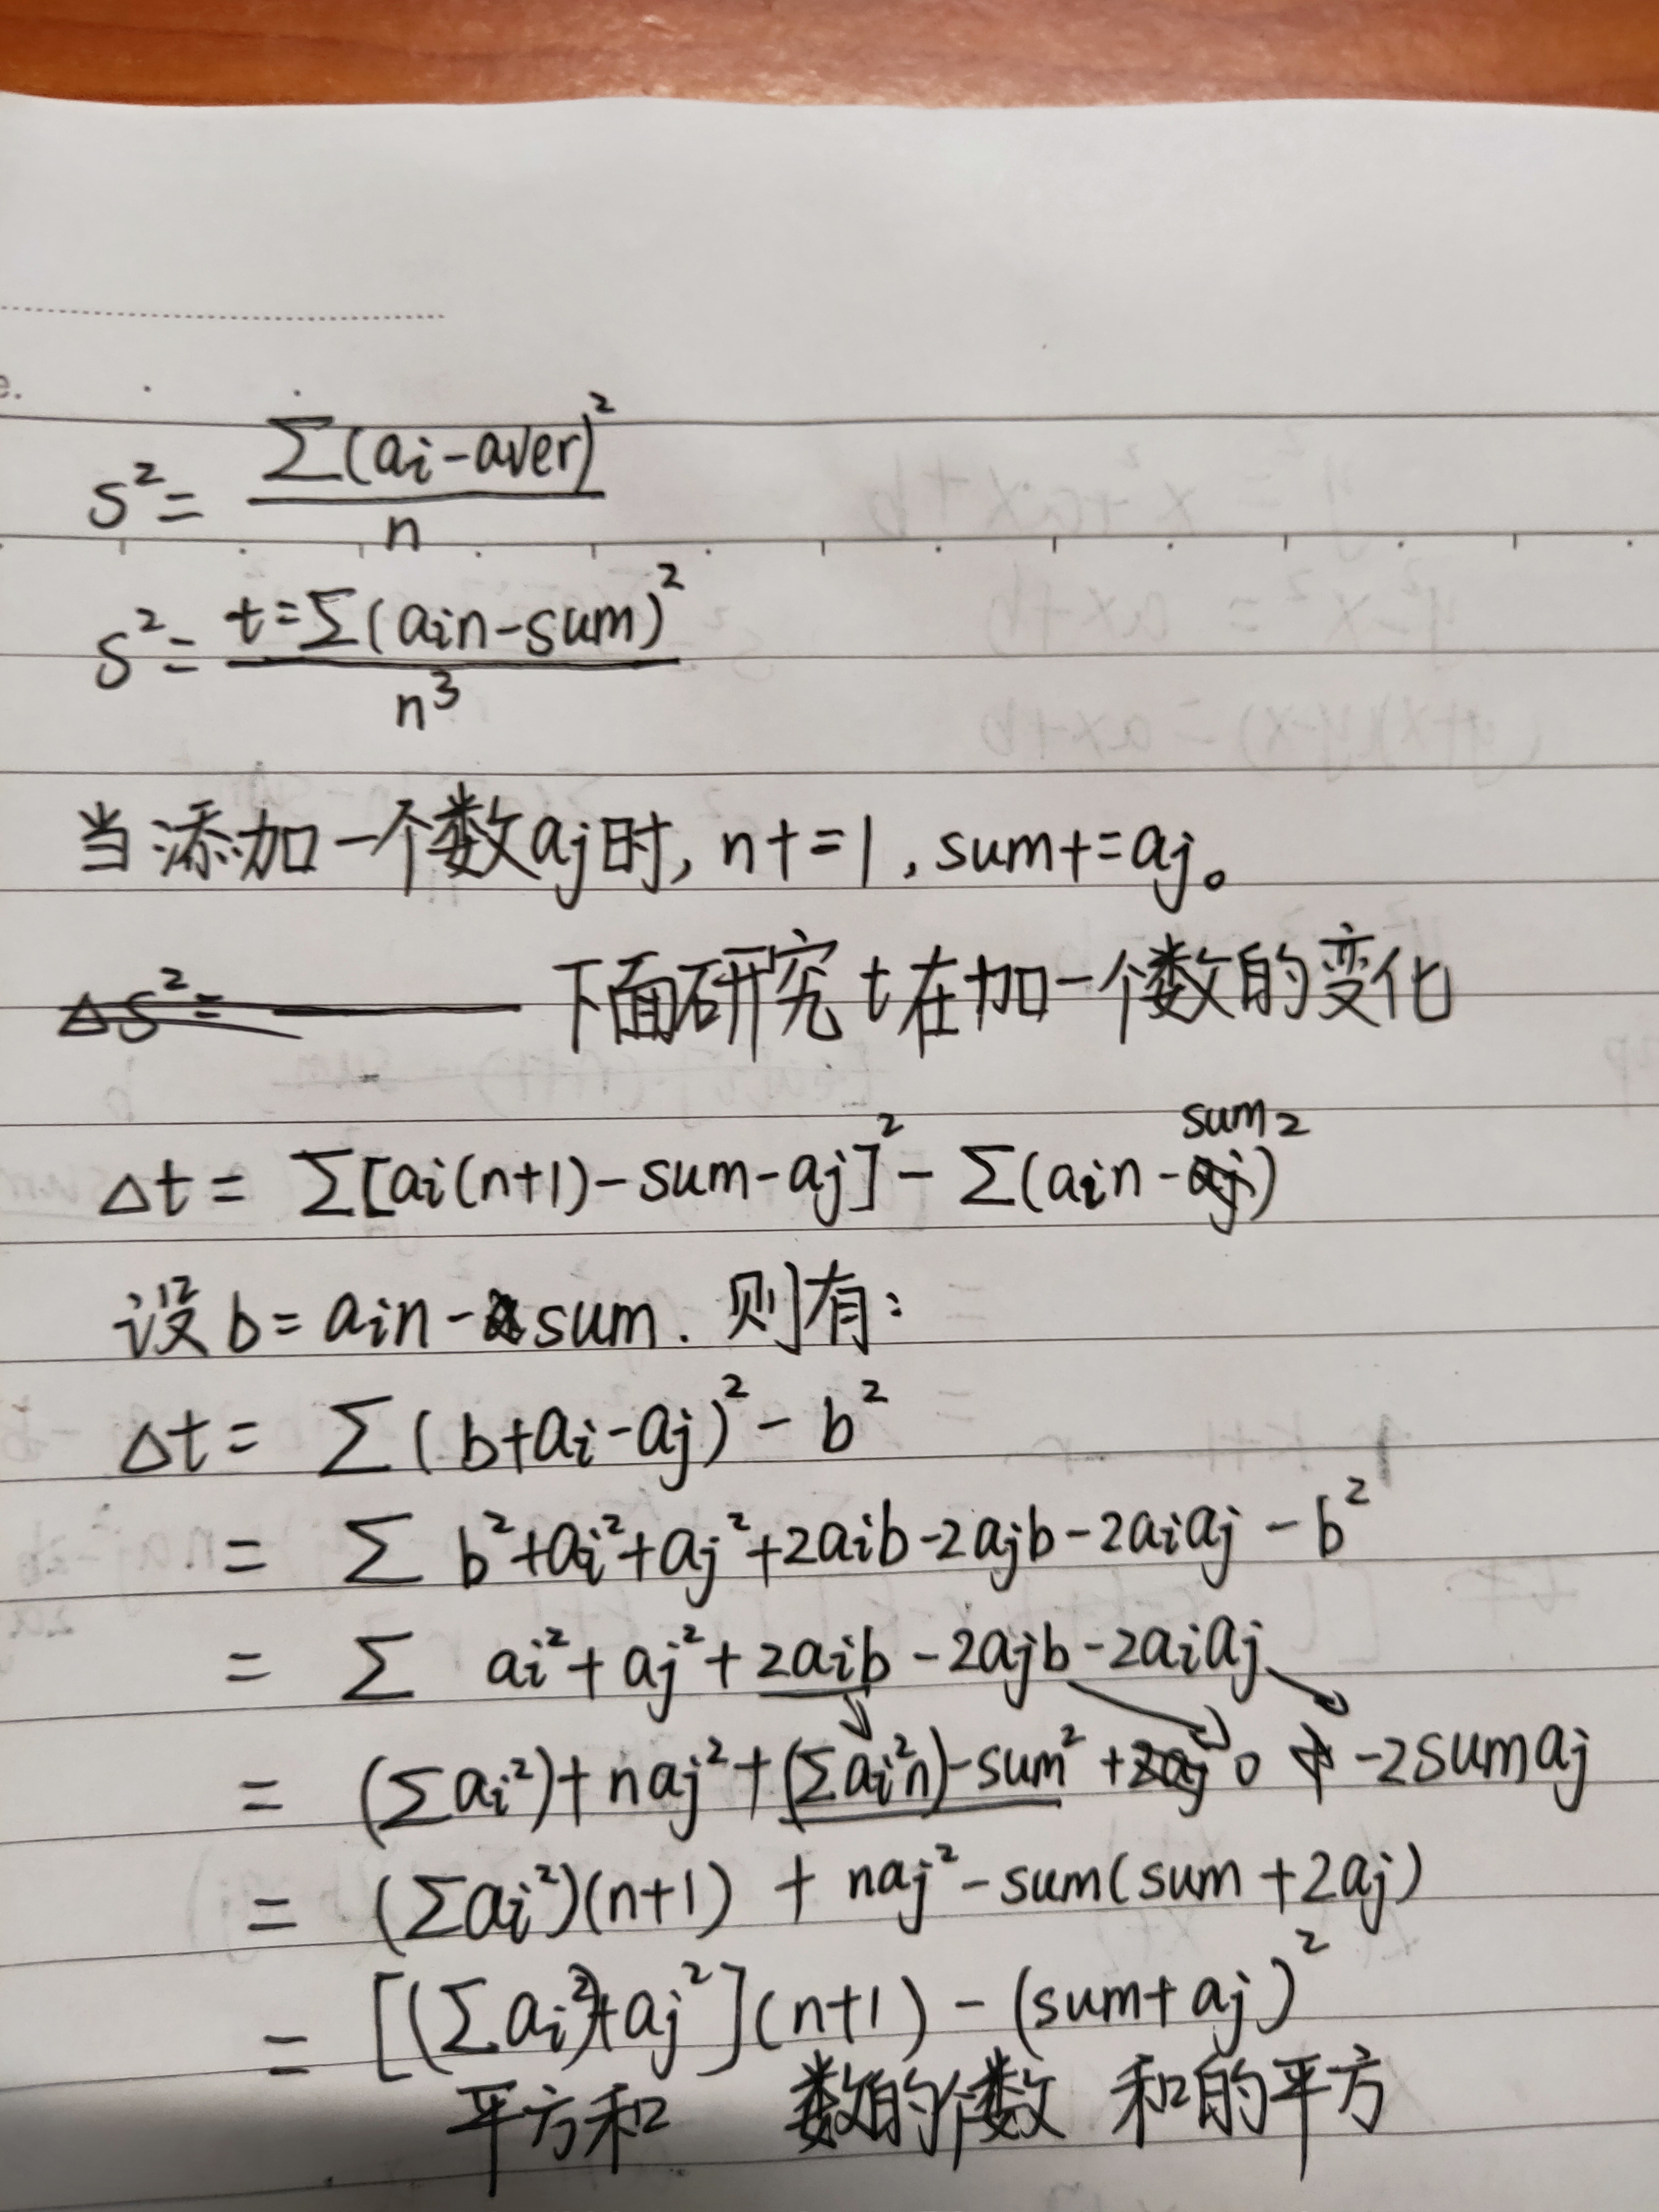 e.
S² = Σ(ai-aver)² / n
S² = t=Σ(ain-sum)² / n³
当添加一个数aj时, n+=1, sum+=aj。
ΔS²= 下面研究t在加一个数的变化
Δt = Σ[ai(n+1)-sum-aj]² - Σ(ain-sum)²
设b=ain-sum. 则有:
Δt = Σ(b+ai-aj)² - b²
= Σ b²+ai²+aj²+2aib-2ajb-2aiaj-b²
= Σ ai²+aj²+2aib-2ajb-2aiaj
= (Σai²)+naj²+(Σai²n)-sum²+0 -2sumaj
= (Σai²)(n+1) + naj²-sum(sum+2aj)
= [(Σai²)+aj²](n+1) - (sum+aj)²
平方和 数的个数 和的平方